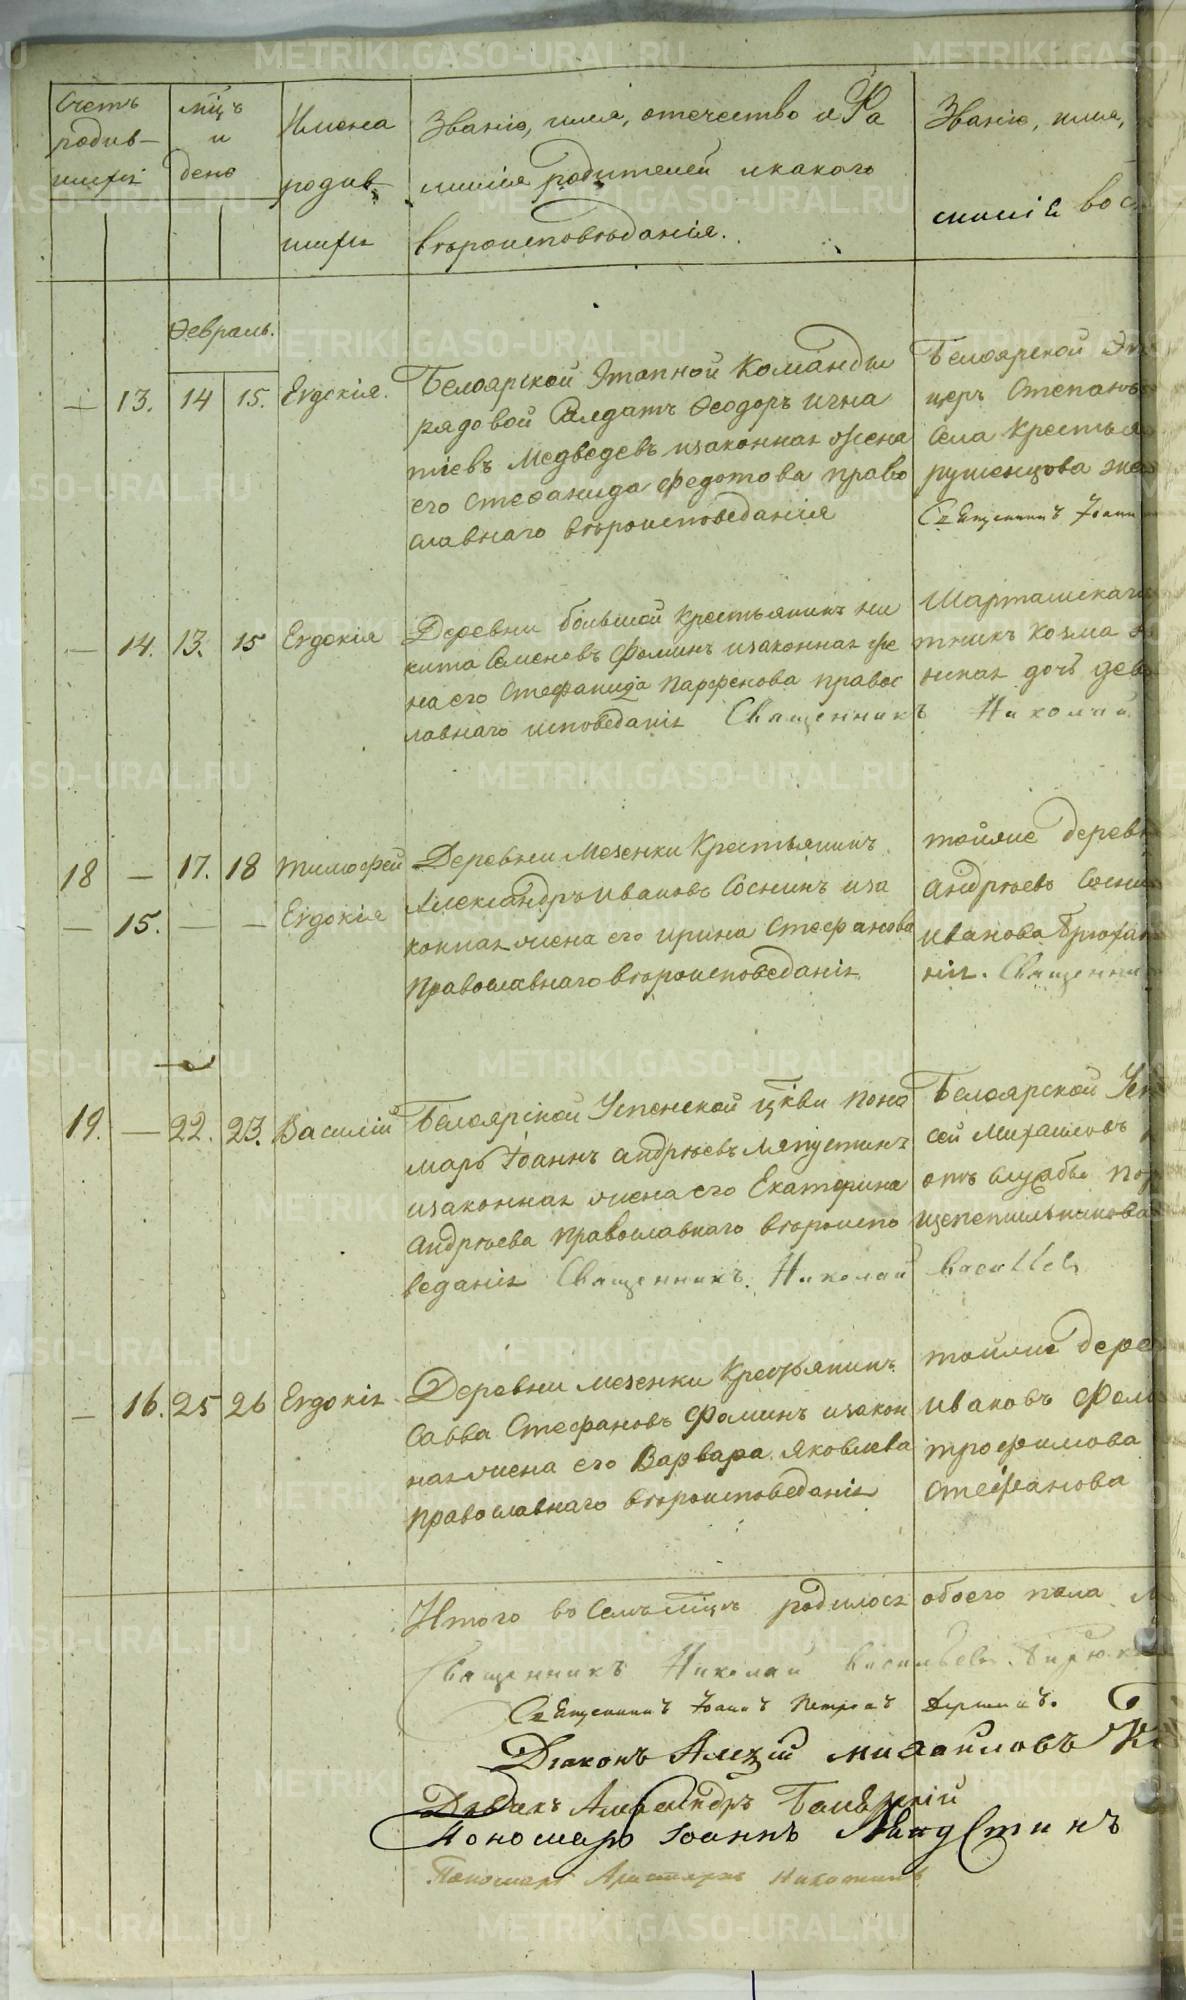 Счетъ
родив-
шихся
мц̃ъ
и
день
Имена
родив-
шихся
Званіе, имя, отечество и Фа
милія родителей и какого
вѣроисповѣданія.
Званіе, имя,
милія вос
Февраль.
— 13. 14 15. Евдокія.
Белоярской Этапной Команды
рядовой Салдатъ Ѳеодоръ Игна
тіевъ Медведевъ изаконная жена
его Стефанида Федотова право
славнаго вѣроисповеданія
Белоярской Эт
церъ Степанъ
Села Крестья
рушенцова
Священникъ Іоанн
— 14. 13. 15 Евдокія
Деревни большой Крестьянинъ ни
кита Семеновъ Фоминъ изаконная же
на его Стефанида Парфенова правос
лавнаго исповеданія Священникъ Николай
Шарташскаго
тникъ Козма
нская дочь дев
18 — 17. 18 Тимофей
— 15. — — Евдокія
Деревни Мезенки Крестьянинъ
Александръ Ивановъ Соснинъ иза
конная жена его ирина Стефанова
Православнаго вѣроисповеданія
тойже дерев
Андрѣевъ Сосни
Иванова Брюхан
нія. Священни
19. — 22. 23. Василій
Белоярской Успенской цр̃кви Поно
марь Іоаннъ Андрѣевъ Ляпустинъ
изаконная жена его Екатерина
Андрѣева Православнаго вѣроиспо
веданія Священникъ Николай Васильев
Белоярской Усп
сей Михаиловъ
отъ службы пор
Щепетильникова
— 16. 25 26 Евдокія
Деревни мезенки Крестьянинъ
Савва Стефановъ Фоминъ изакон
ная жена его Варвара Яковлева
Православнаго вѣроисповеданія
тойже дере
Ивановъ Фом
трофимова
Стефанова
Итого во Семъ мц̃ѣ родилось обоего пола
Священникъ Николай Васильевъ Бирюк
Священникъ Іоаннъ Петровъ
Діаконъ Алексій Михайловъ
Дьячекъ Александръ
Пономарь Іоаннъ Ляпустинъ
Пономарь Аристархъ Никитинъ
METRIKI.GASO-URAL.RU